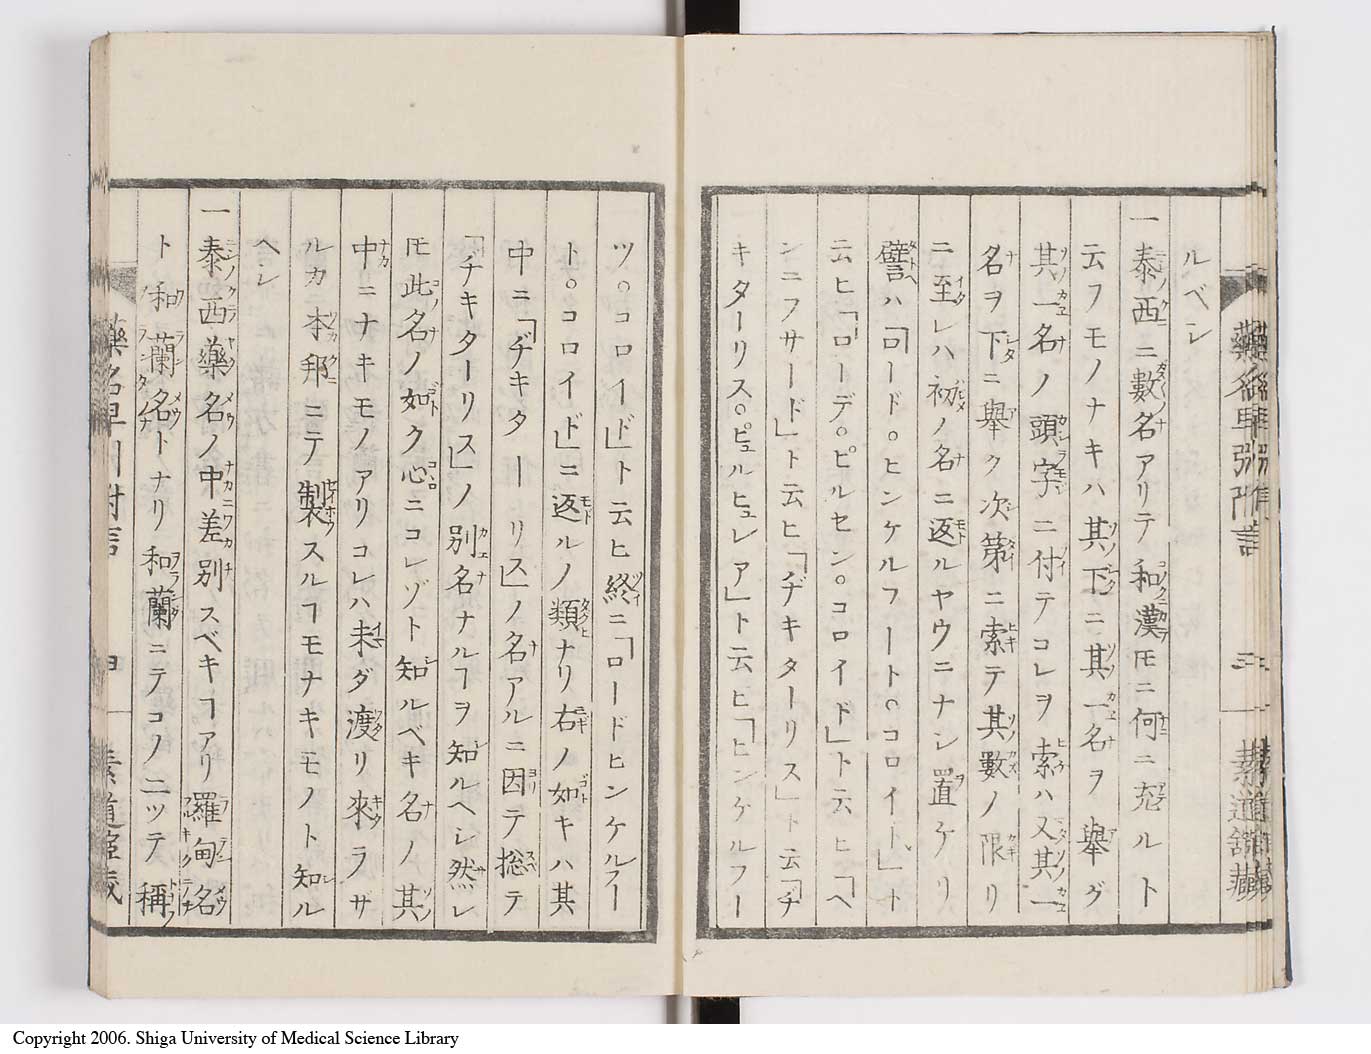 ルベシ
一泰西ニ數名アリテ和漢𪜈ニ何ニ充ルト
云フモノナキハ其下ニ其一名ヲ舉グ
其一名ノ頭字ニ付テコレヲ索ハ又其一
名ヲ下ニ舉ク次第ニ索テ其數ノ限リ
ニ至レハ初ノ名ニ返ルヤウニナシ置ケリ
譬ハ「ロード。ヒンケルフート。コロイト、」ト
云ヒ「ローデ。ピルセン。コロイド」ト云ヒ「ヘ
ンニフサード」ト云ヒ「ヂキターリス」ト云「ヂ
キターリス。ピュルヒュレア」ト云ヒ「ヒンケルフー
ツ。コロイド」ト云ヒ終ニ「ロードヒンケルフー
ト。コロイド」ニ返ルノ類ナリ右ノ如キハ其
中ニ「ヂキターリス」ノ名アルニ因テ捴テ
「ヂキターリス」ノ別名ナルヿヲ知ルヘシ然レ
𪜈此名ノ如ク心ニコレゾト知ルベキ名ノ其
中ニナキモノアリコレハ未ダ渡リ來ラザ
ルカ本邦ニテ製スルヿモナキモノト知ル
ヘシ
一泰西藥名ノ中差別スベキヿアリ羅甸名
ト和蘭名トナリ和蘭ニテコノ二ッテ稱
藥名早引附言
Copyright 2006. Shiga University of Medical Science Library